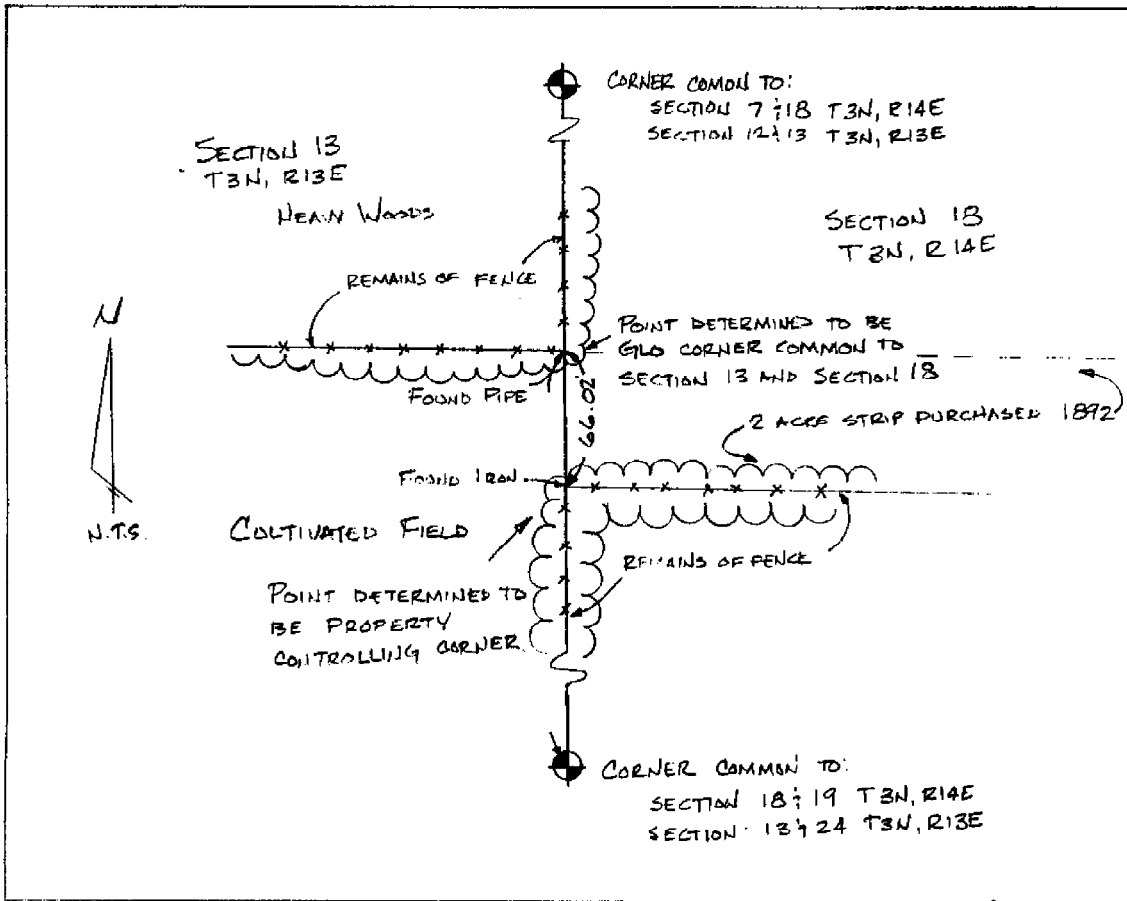 CORNER COMON TO:
SECTION 7 & 18 T3N, R14E
SECTION 12 & 13 T3N, R13E
SECTION 13
T3N, R13E
HEAVY WOODS
SECTION 18
T3N, R14E
REMAINS OF FENCE
N
POINT DETERMINED TO BE
GLO CORNER COMMON TO
SECTION 13 AND SECTION 18
FOUND PIPE
66.02'
2 ACRE STRIP PURCHASED 1892
FOUND IRON
N.T.S.
CULTIVATED FIELD
REMAINS OF FENCE
POINT DETERMINED TO
BE PROPERTY
CONTROLLING CORNER
CORNER COMMON TO:
SECTION 18 & 19 T3N, R14E
SECTION 13 & 24 T3N, R13E